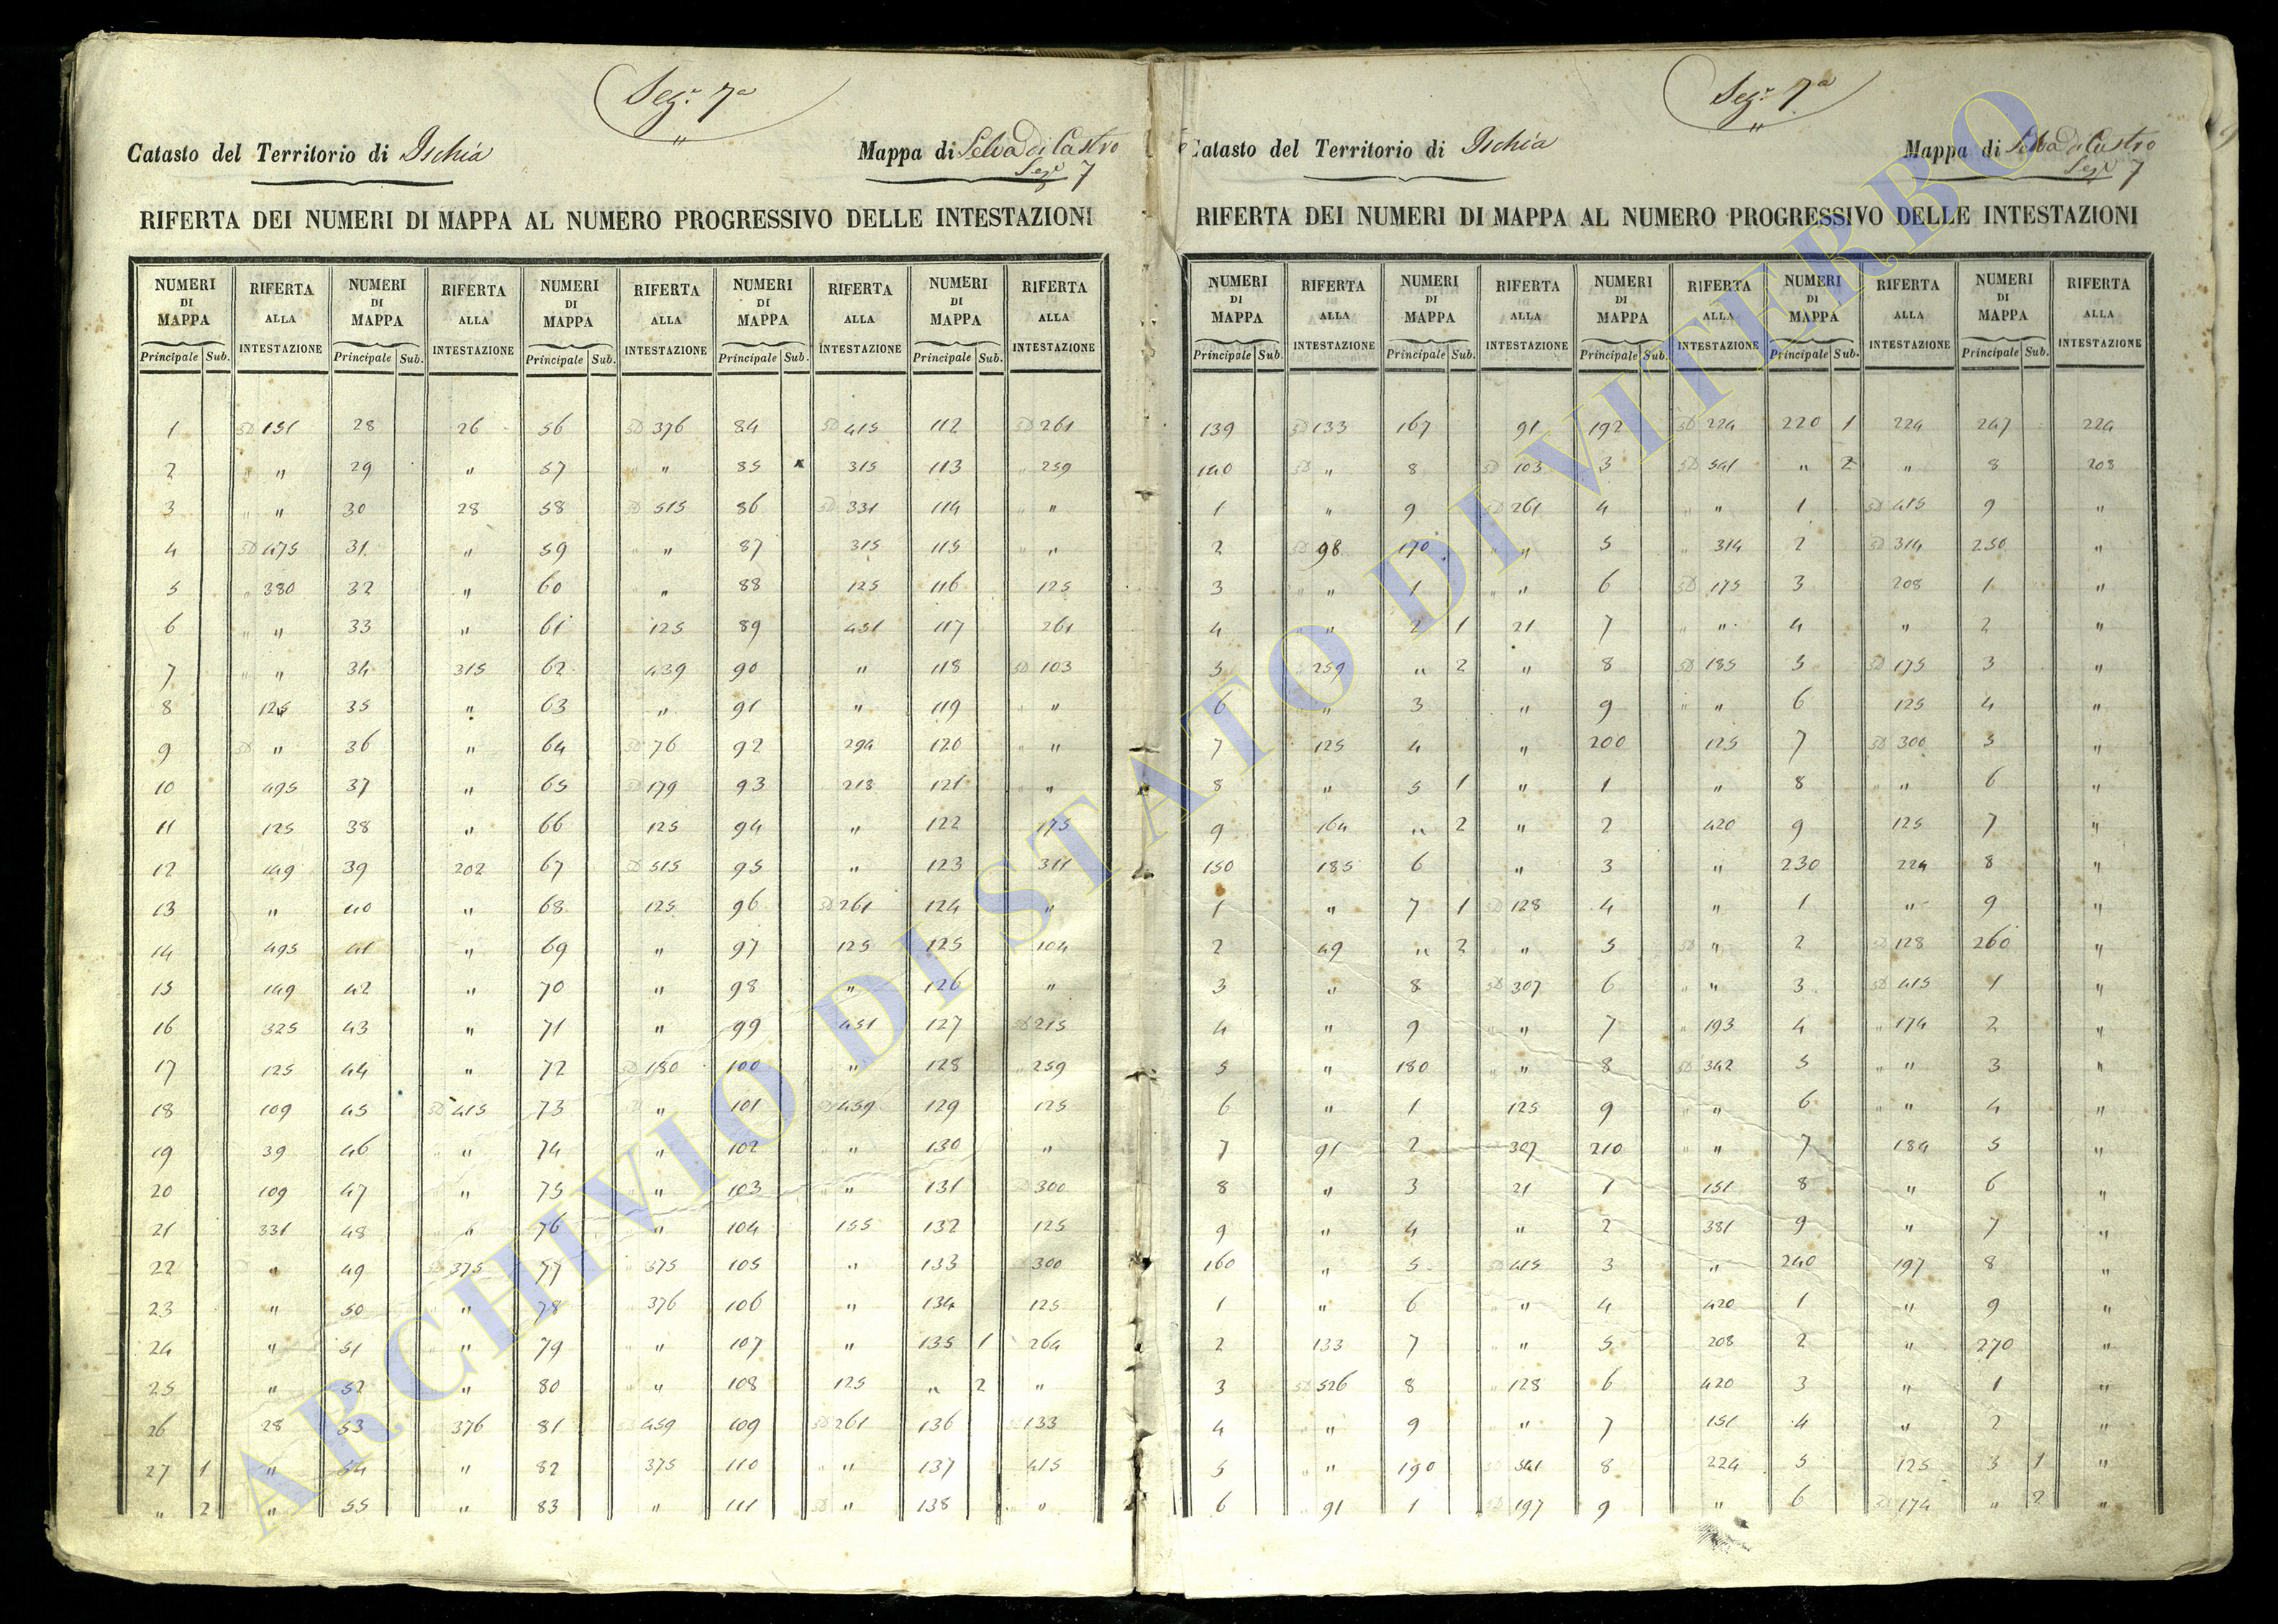 Segr. 7a
Catasto del Territorio di Ischia
Mappa di Selva di Castro
Segr. 7
RIFERTA DEI NUMERI DI MAPPA AL NUMERO PROGRESSIVO DELLE INTESTAZIONI
NUMERI DI MAPPA RIFERTA ALLA INTESTAZIONE NUMERI DI MAPPA RIFERTA ALLA INTESTAZIONE NUMERI DI MAPPA RIFERTA ALLA INTESTAZIONE NUMERI DI MAPPA RIFERTA ALLA INTESTAZIONE NUMERI DI MAPPA RIFERTA ALLA INTESTAZIONE
Principale Sub. Principale Sub. Principale Sub. Principale Sub. Principale Sub.
1 151 28 26 56 376 84 415 112 261
2 " 29 " 57 " 85 315 113 259
3 " 30 28 58 515 86 331 114 "
4 475 31 " 59 " 87 315 115 "
5 380 32 " 60 " 88 125 116 125
6 " 33 " 61 125 89 451 117 261
7 " 34 315 62 439 90 " 118 103
8 125 35 " 63 " 91 " 119 "
9 " 36 " 64 76 92 294 120 "
10 495 37 " 65 179 93 218 121 "
11 125 38 " 66 125 94 " 122 175
12 149 39 202 67 515 95 " 123 311
13 " 40 " 68 125 96 261 124 "
14 495 41 " 69 " 97 125 125 104
15 149 42 " 70 " 98 " 126 "
16 325 43 " 71 " 99 451 127 215
17 125 44 " 72 180 100 " 128 259
18 109 45 415 73 " 101 459 129 125
19 39 46 " 74 " 102 " 130 "
20 109 47 " 75 " 103 " 131 300
21 331 48 " 76 " 104 155 132 125
22 " 49 375 77 375 105 " 133 300
23 " 50 " 78 376 106 " 134 125
24 " 51 " 79 " 107 " 135 1 264
25 " 52 " 80 " 108 125 " 2 "
26 28 53 376 81 459 109 261 136 133
27 1 " 54 " 82 375 110 " 137 415
" 2 " 55 " 83 " 111 " 138 "
Segr. 7a
Catasto del Territorio di Ischia
Mappa di Selva di Castro
Segr. 7
RIFERTA DEI NUMERI DI MAPPA AL NUMERO PROGRESSIVO DELLE INTESTAZIONI
NUMERI DI MAPPA RIFERTA ALLA INTESTAZIONE NUMERI DI MAPPA RIFERTA ALLA INTESTAZIONE NUMERI DI MAPPA RIFERTA ALLA INTESTAZIONE NUMERI DI MAPPA RIFERTA ALLA INTESTAZIONE NUMERI DI MAPPA RIFERTA ALLA INTESTAZIONE
Principale Sub. Principale Sub. Principale Sub. Principale Sub. Principale Sub.
139 133 167 91 192 224 220 1 224 247 224
140 " 8 103 3 541 " 2 " 8 208
1 " 9 261 4 " 1 415 9 "
2 98 170 " 5 314 2 314 250 "
3 " 1 " 6 175 3 208 1 "
4 " 2 1 21 7 " 4 " 2 "
5 259 " 2 " 8 185 5 175 3 "
6 " 3 " 9 " 6 125 4 "
7 125 4 " 200 125 7 300 5 "
8 " 5 1 " 1 " 8 " 6 "
9 164 " 2 " 2 420 9 125 7 "
150 185 6 " 3 " 230 224 8 "
1 " 7 1 128 4 " 1 " 9 "
2 49 " 2 " 5 " 2 128 260 "
3 " 8 307 6 " 3 415 1 "
4 " 9 " 7 193 4 174 2 "
5 " 180 " 8 342 5 " 3 "
6 " 1 125 9 " 6 " 4 "
7 91 2 307 210 " 7 184 5 "
8 " 3 21 1 151 8 " 6 "
9 " 4 " 2 381 9 " 7 "
160 " 5 415 3 " 240 197 8 "
1 " 6 " 4 420 1 " 9 "
2 133 7 " 5 208 2 " 270 "
3 526 8 128 6 420 3 " 1 "
4 " 9 " 7 151 4 " 2 "
5 " 190 541 8 224 5 125 3 1 "
6 91 1 197 9 " 6 174 " 2 "
ARCHIVIO DI STATO DI VITERBO